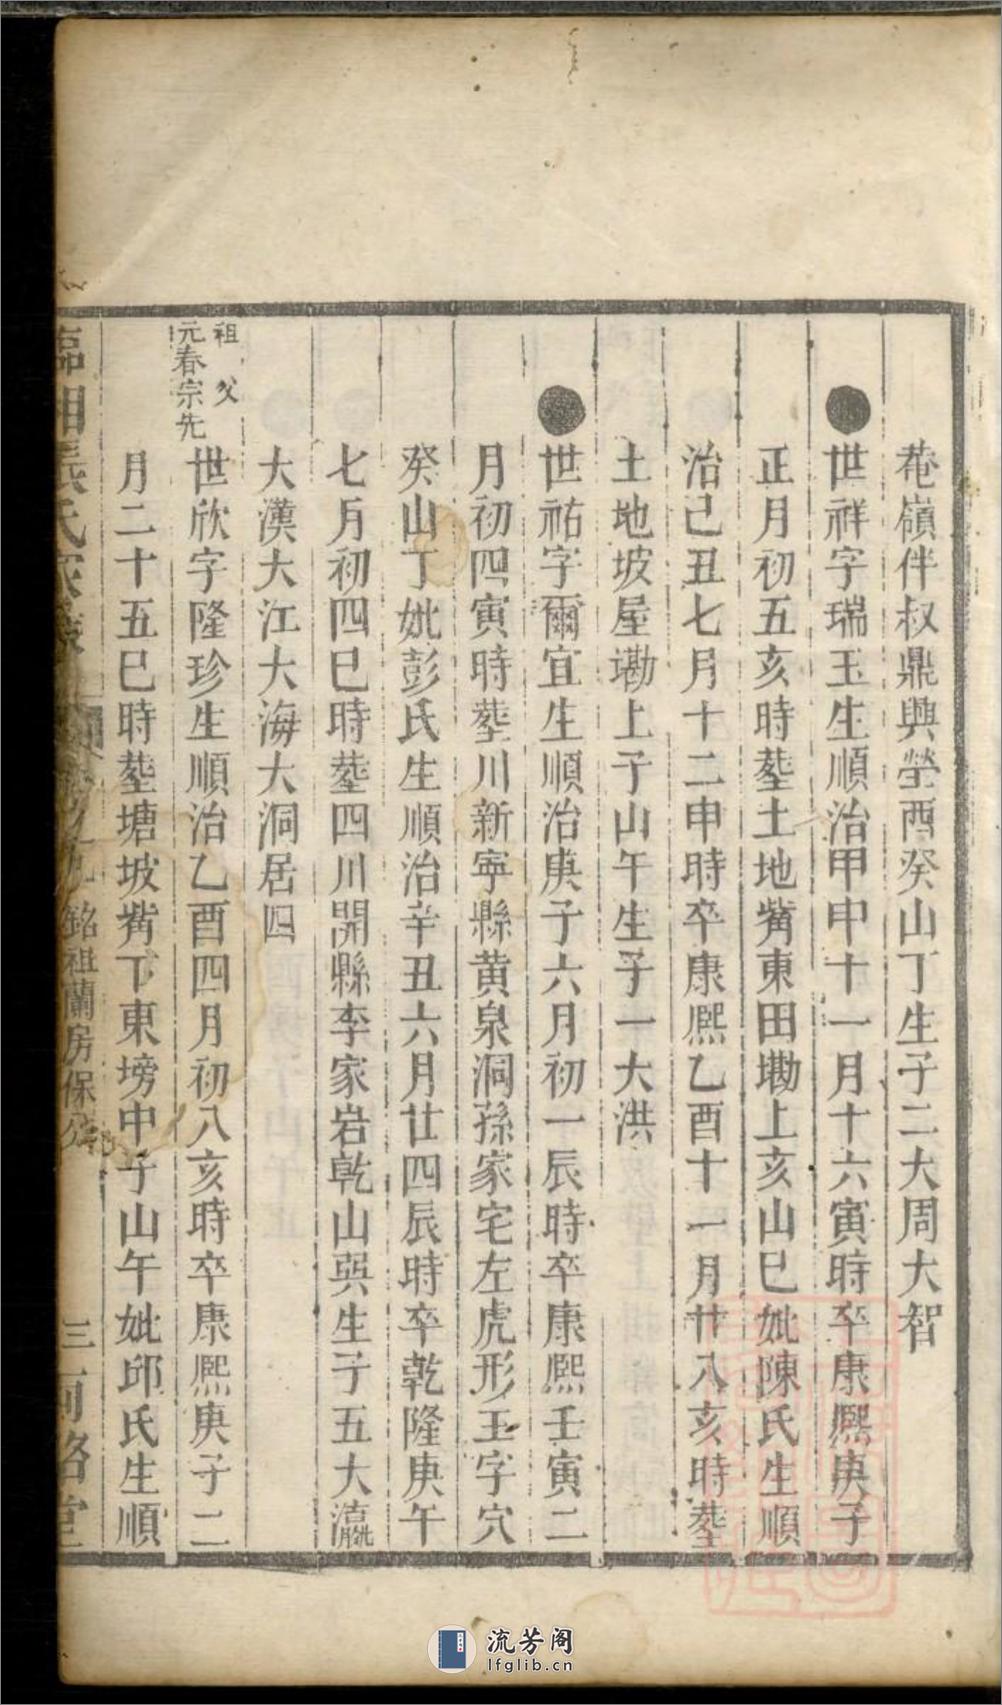 菴嶺伴叔鼎興塋酉癸山丁生子二大周大智
世祥字瑞玉生順治甲申十一月十六寅時卒康熙庚子
正月初五亥時塟土地嘴東田墈上亥山巳妣陳氏生順
治己丑七月十二申時卒康熙乙酉十一月廿八亥時塟
土地坡屋墈上子山午生子一大洪
世祐字爾宜生順治庚子六月初一辰時卒康熙壬寅二
月初四寅時塟川新寧縣黄泉洞孫家宅左虎形王字穴
癸山丁妣彭氏生順治辛丑六月廿四辰時卒乾隆庚午
七月初四巳時塟四川開縣李家岩乾山巽生子五大瀛
大漢大江大海大洞居四
祖父
元春宗先
世欣字隆珍生順治乙酉四月初八亥時卒康熙庚子二
月二十五巳時塟塘坡嘴下東塝中子山午妣邱氏生順
臨湘 氏家
銘祖蘭房保公
三 堂
流芳阁
lfglib.cn